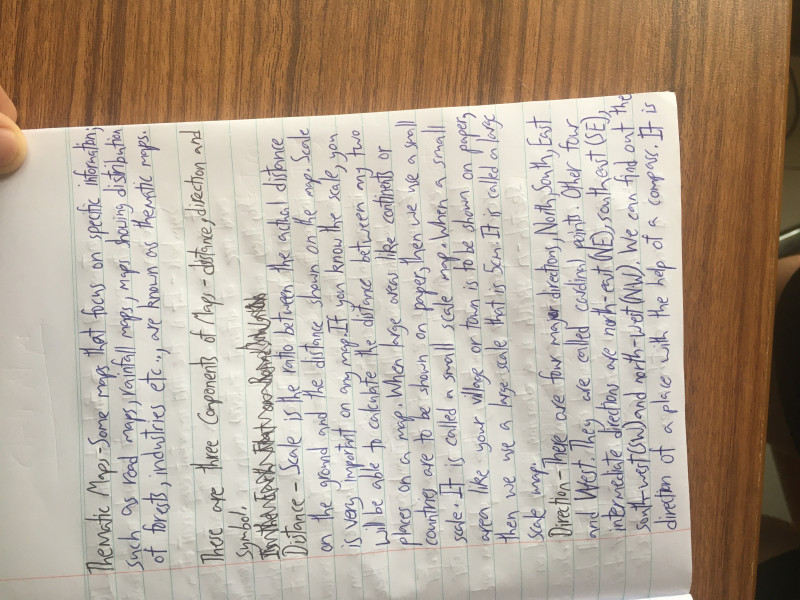 Thematic Maps - Some maps that focus on specific information;
such as read maps, rainfall maps, maps showing distribution
of forests, industries etc., are known as thematic maps.
There are three Components of Maps - distance, direction and
symbol.
Distance - Scale is the ratio between the actual distance
on the ground and the distance shown on the map. Scale
is very important on any map. If you know the scale, you
will be able to calculate the distance between any two
places on a map. When large areas like continents or
countries are to be shown on paper, then we use a small
scale. It is called a small scale map. When a small
area like your village or town is to be shown on paper,
then we use a large scale that is 5cm. It is called a large
scale map.
Direction - There are four major directions, North, South, East
and West. They are called cardinal points. Other four
intermediate directions are north-east (NE), southeast (SE),
south-west (SW) and north-west (NW). We can find out the
direction of a place with the help of a compass. It is